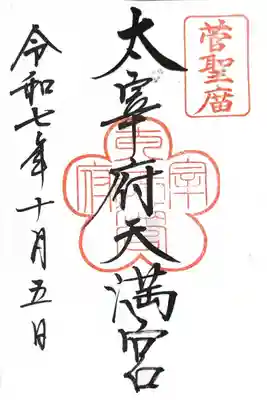 菅聖廟
太宰府天満宮
令和七年十月五日